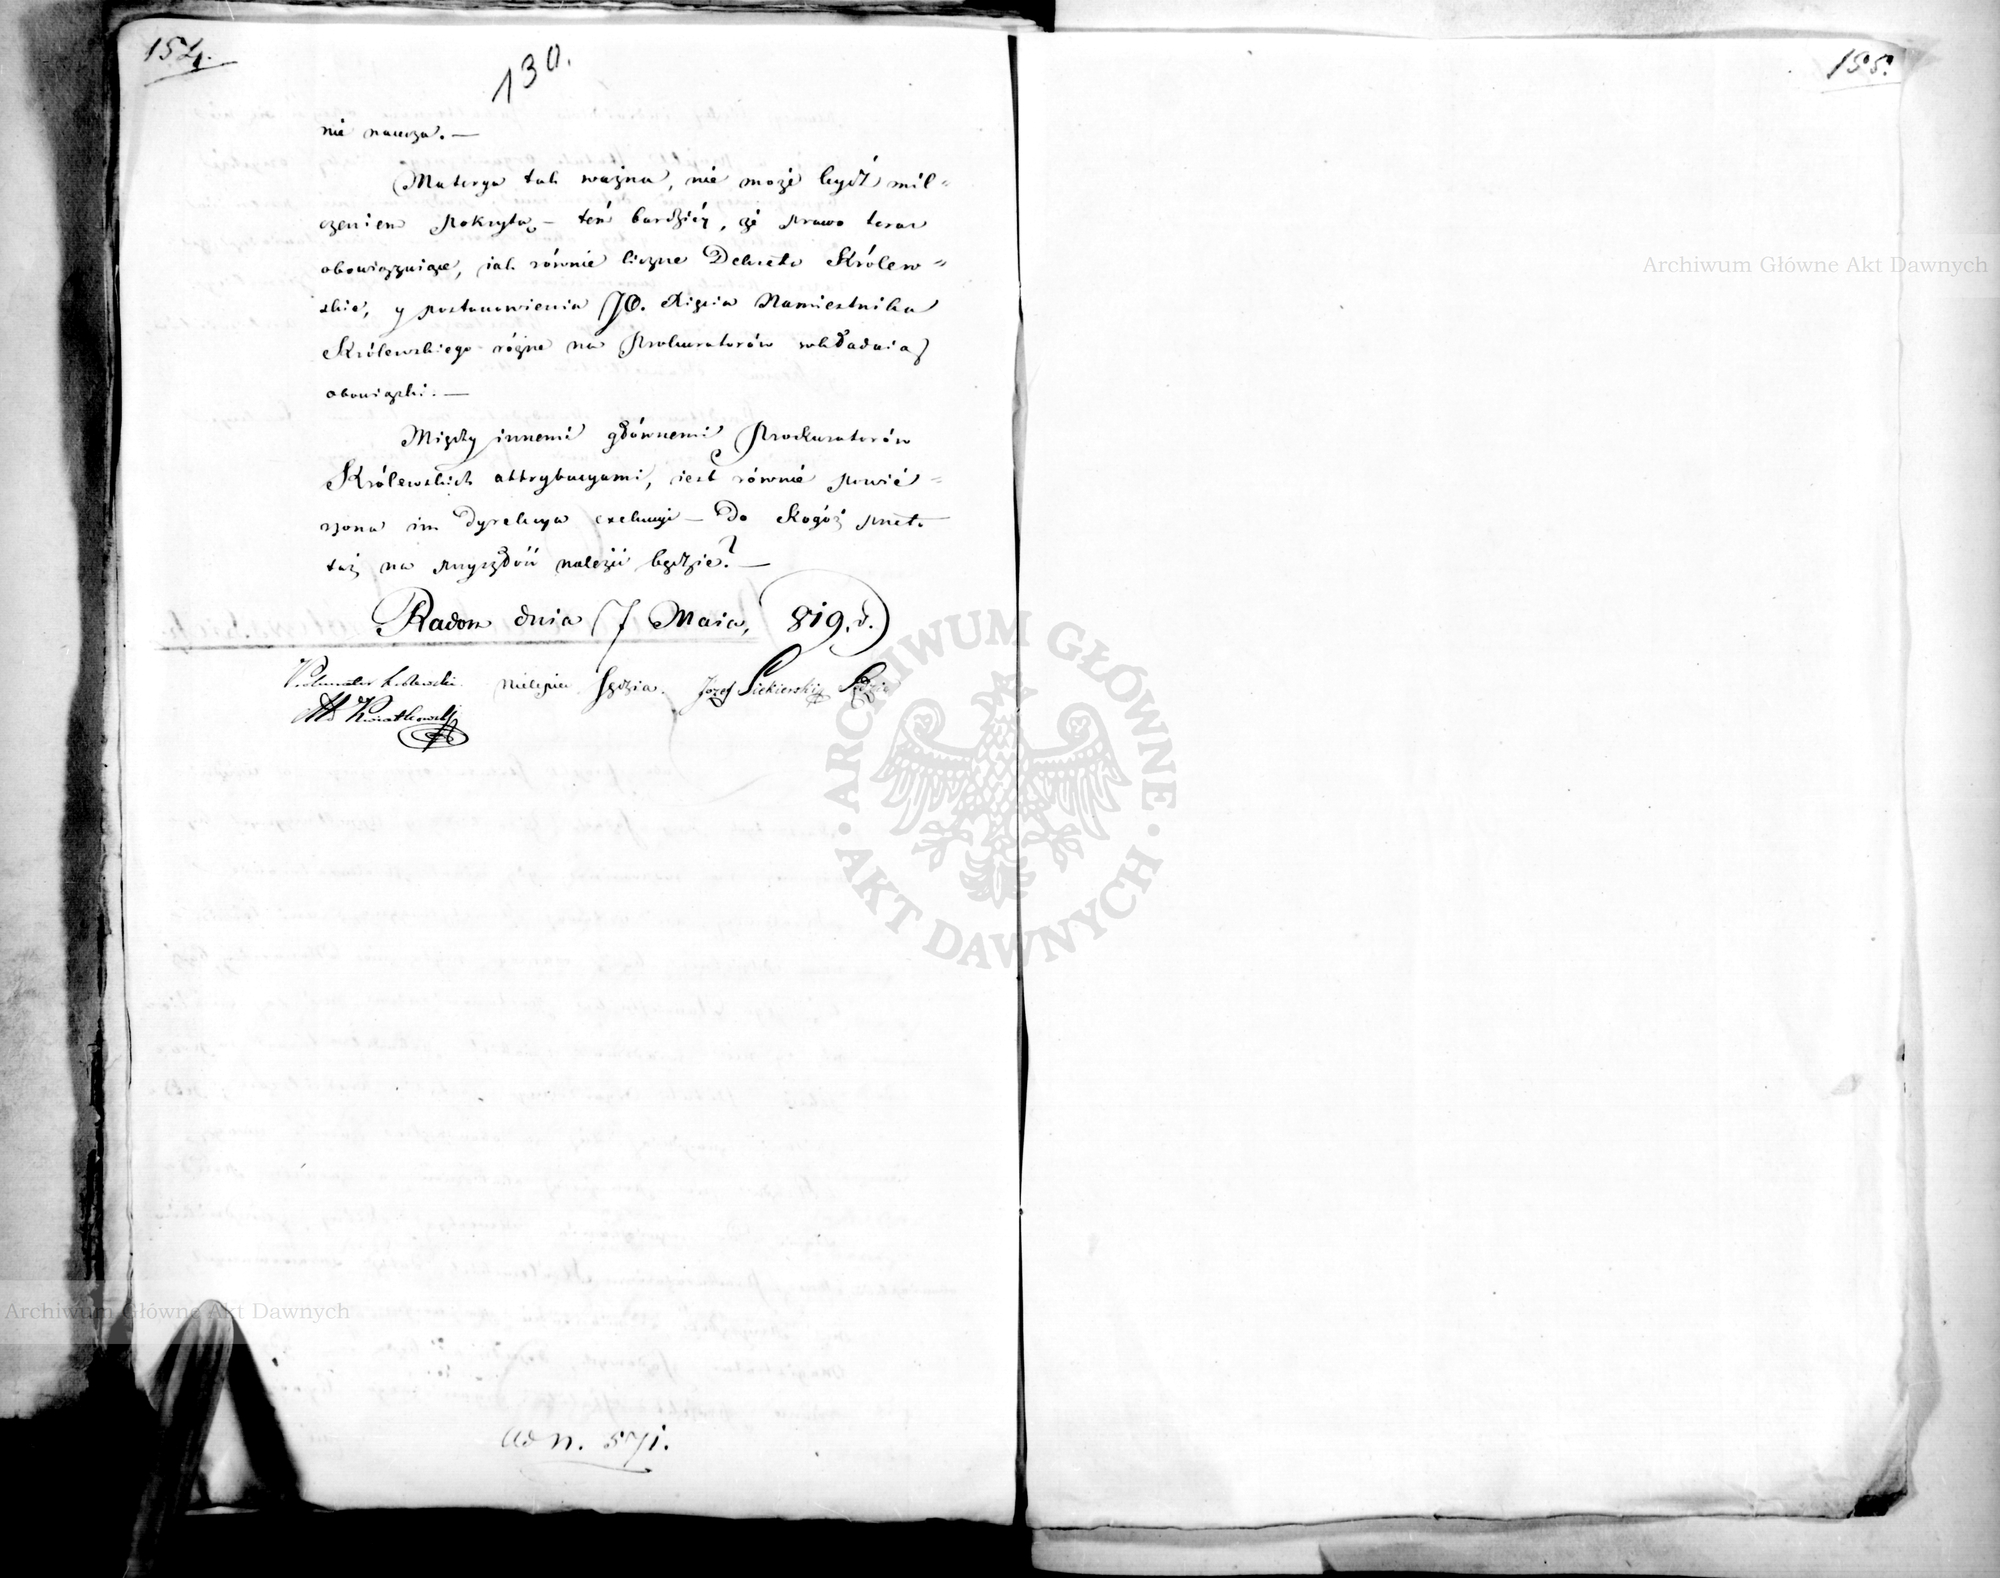 154.
130.
nie naucza. —
Materya tak ważna, nie może bydź mil-
czeniem pokryta — tem bardziéy, że prawo teraz
obowiązuiące, iak równie liczne Dekreta Królew-
skie, y postanowienia JO. Xięcia Namiestnika
Królewskiego różne na Prokuratorów wkładaią
obowiązki. —
Między innemi głównemi Prokuratorów
Królewskich attrybucyami, iest równie powie-
rzona im Dyrekcya exekucyi — Do kogóż przeto
taż na przyszłość należeć będzie? —
Radom dnia 7 Maia, 819. r.
Prokurator
Sędzia. Józef Siekierski Sędzia
Kwiatkowski
ad n. 571.
155.
Archiwum Główne Akt Dawnych
ARCHIWUM GŁÓWNE AKT DAWNYCH
Archiwum Główne Akt Dawnych